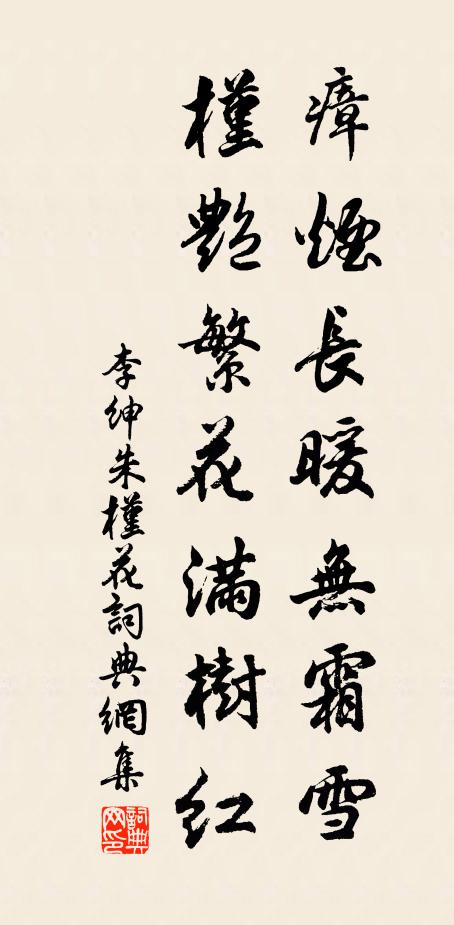 瘴煙長暖無霜雪
槿艷繁花滿樹紅
李紳朱槿花詞典網集
詞典網印